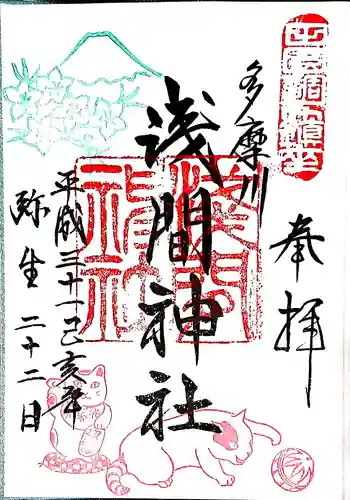 奉拝
多摩川
浅間神社
平成三十一己亥年
弥生二十二日
浅間
神社